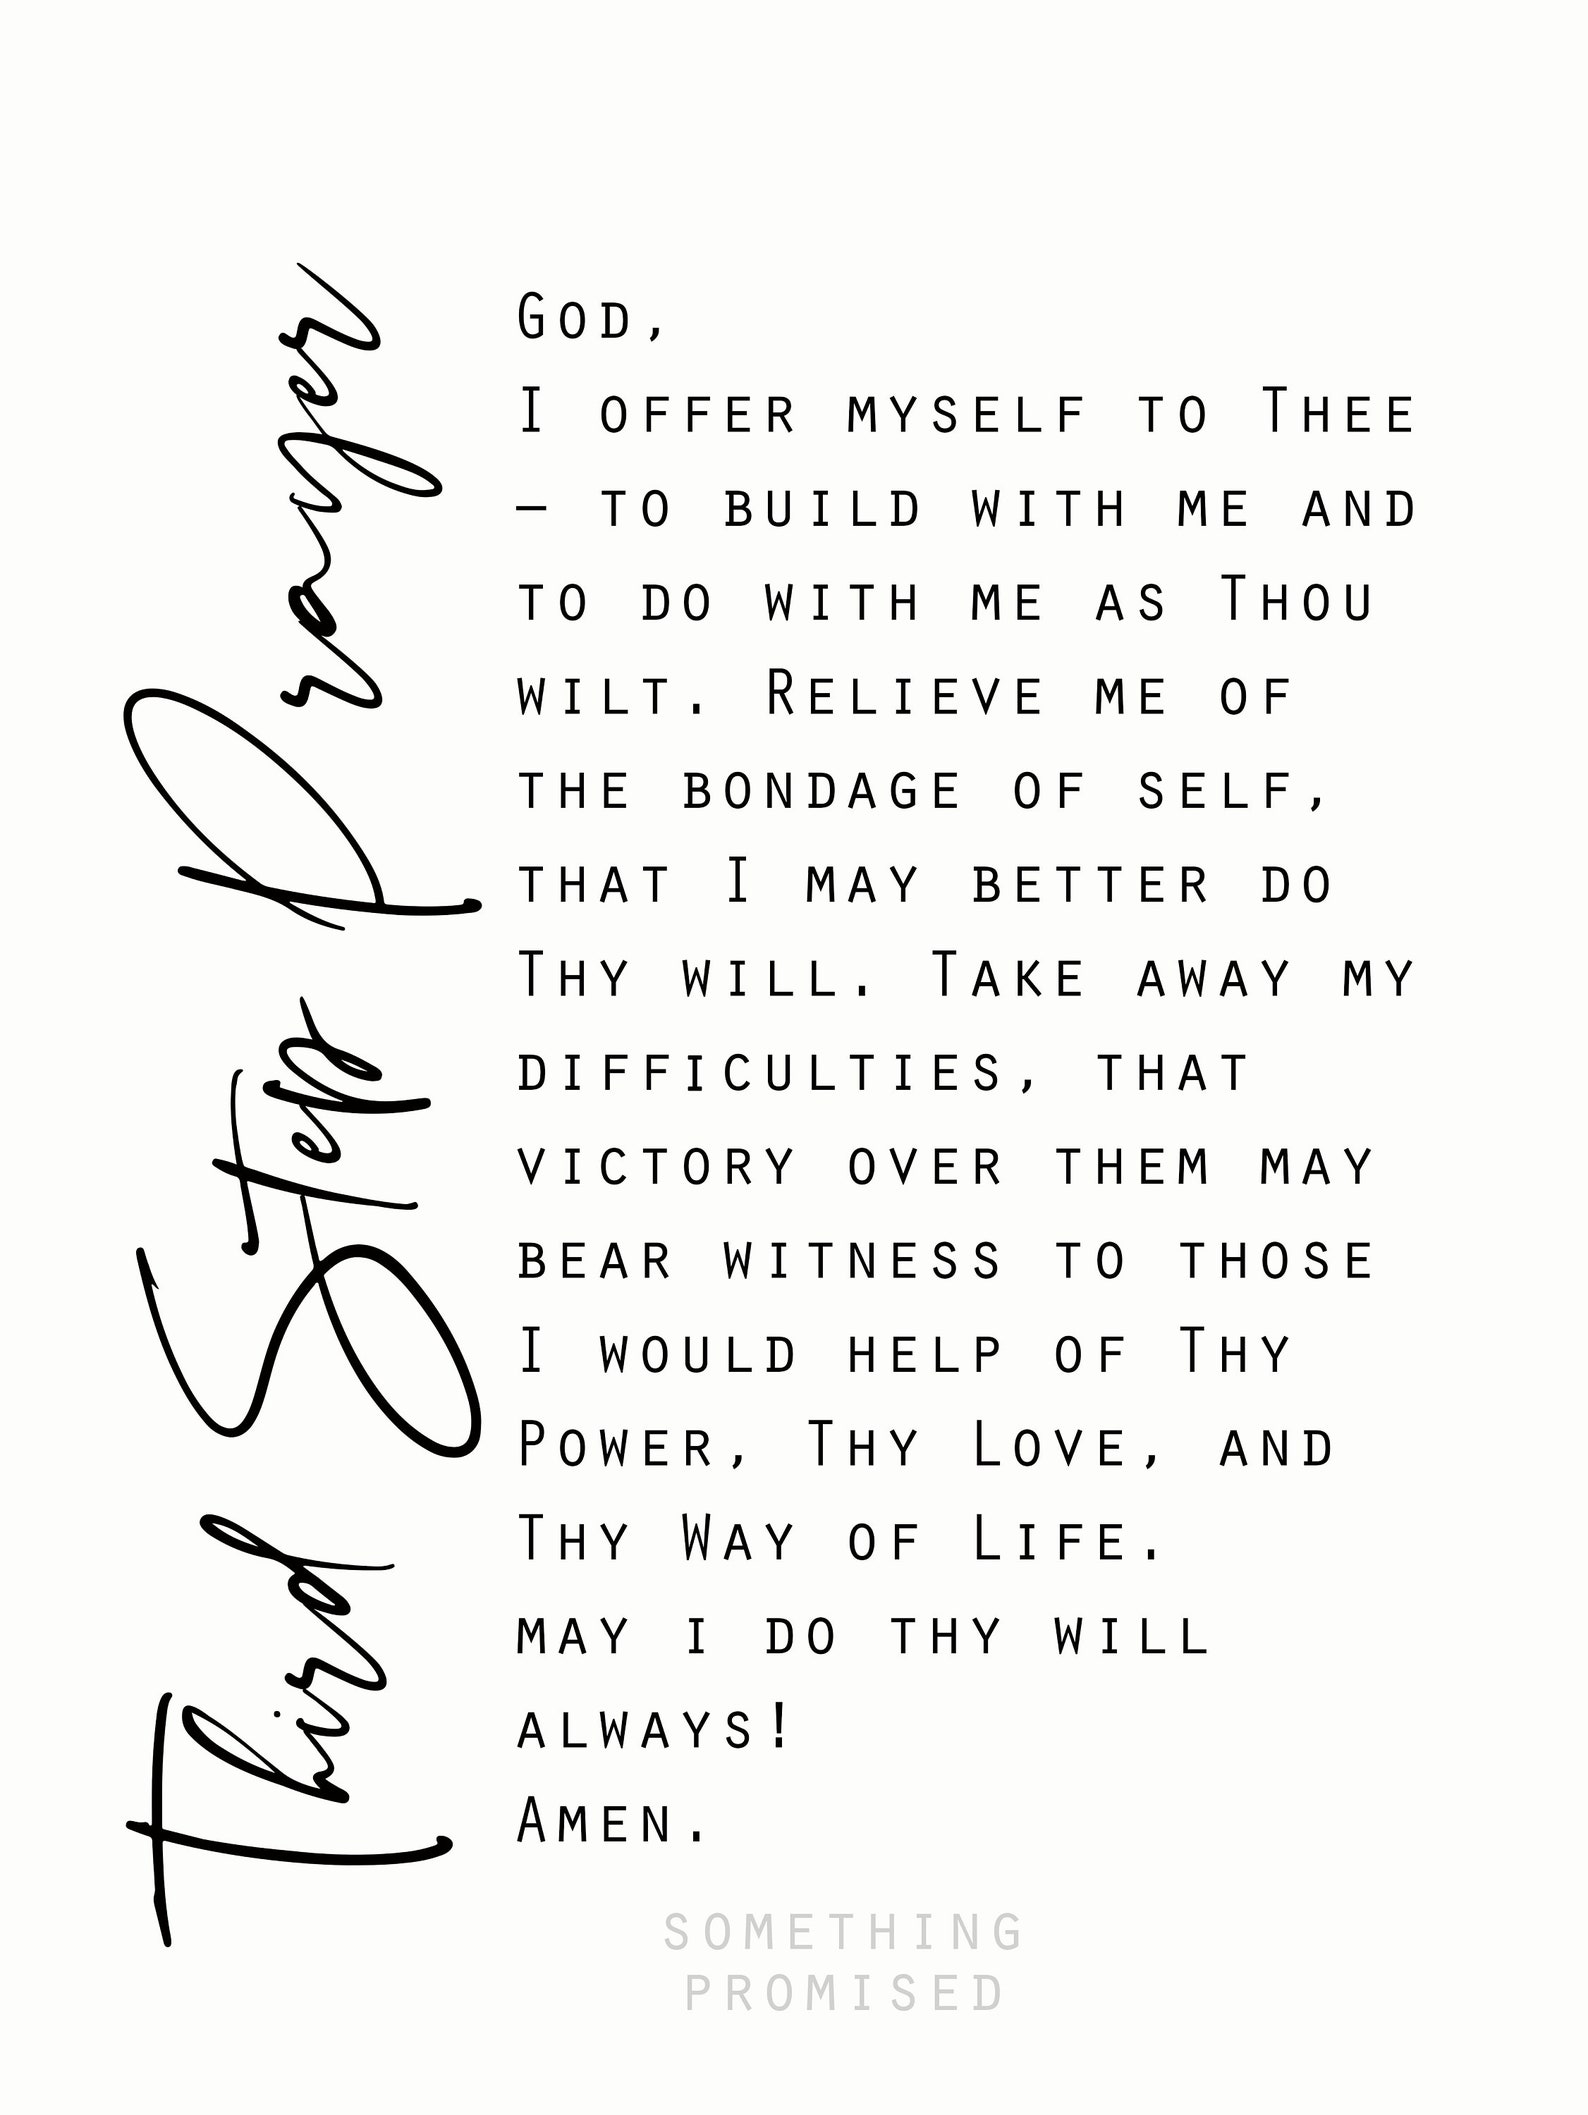 Third Step Prayer
God,
I offer myself to Thee
– to build with me and
to do with me as Thou
wilt. Relieve me of
the bondage of self,
that I may better do
Thy will. Take away my
difficulties, that
victory over them may
bear witness to those
I would help of Thy
Power, Thy Love, and
Thy Way of Life.
may i do thy will
always!
Amen.
SOMETHING
PROMISED